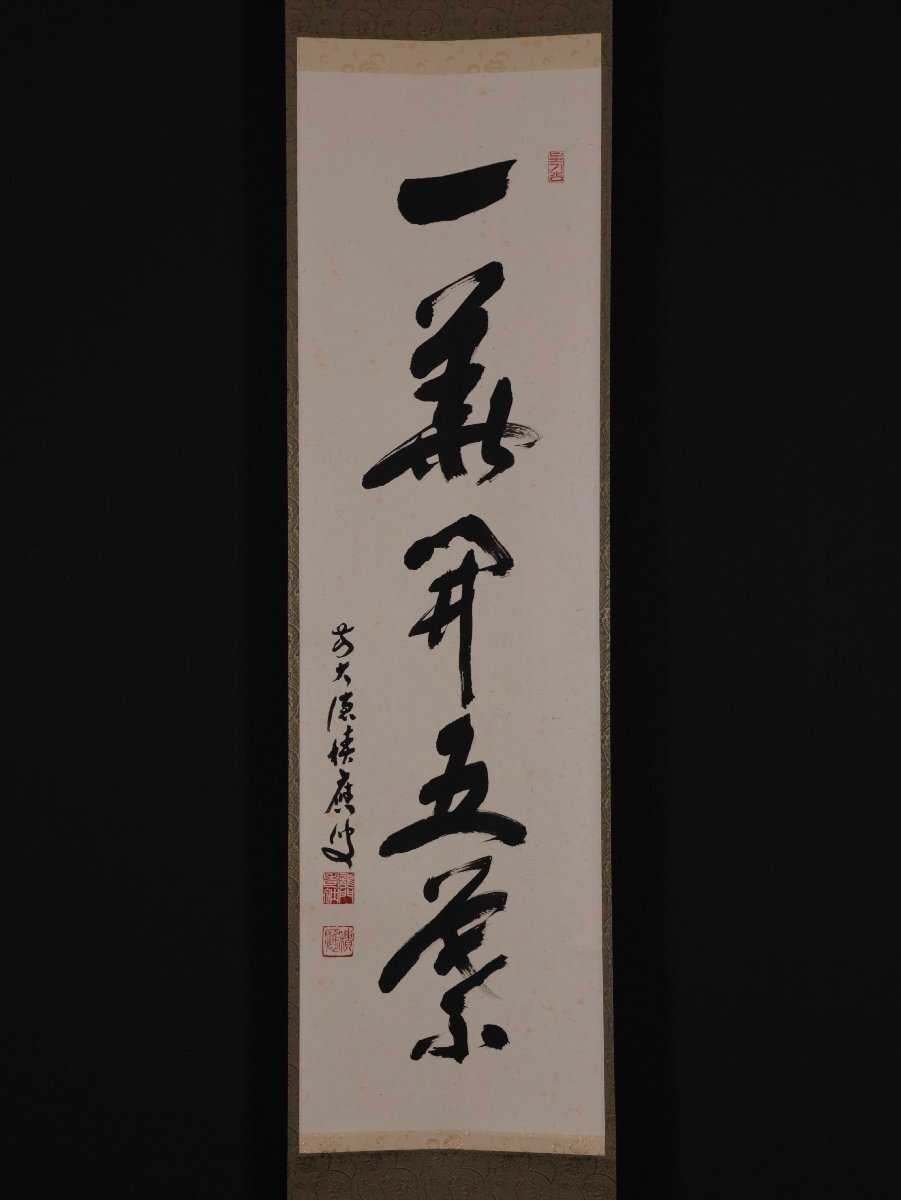 一華開五葉
前大徳積應叟